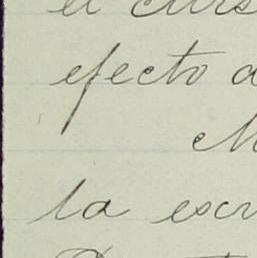 el curs
efecto d
la escr